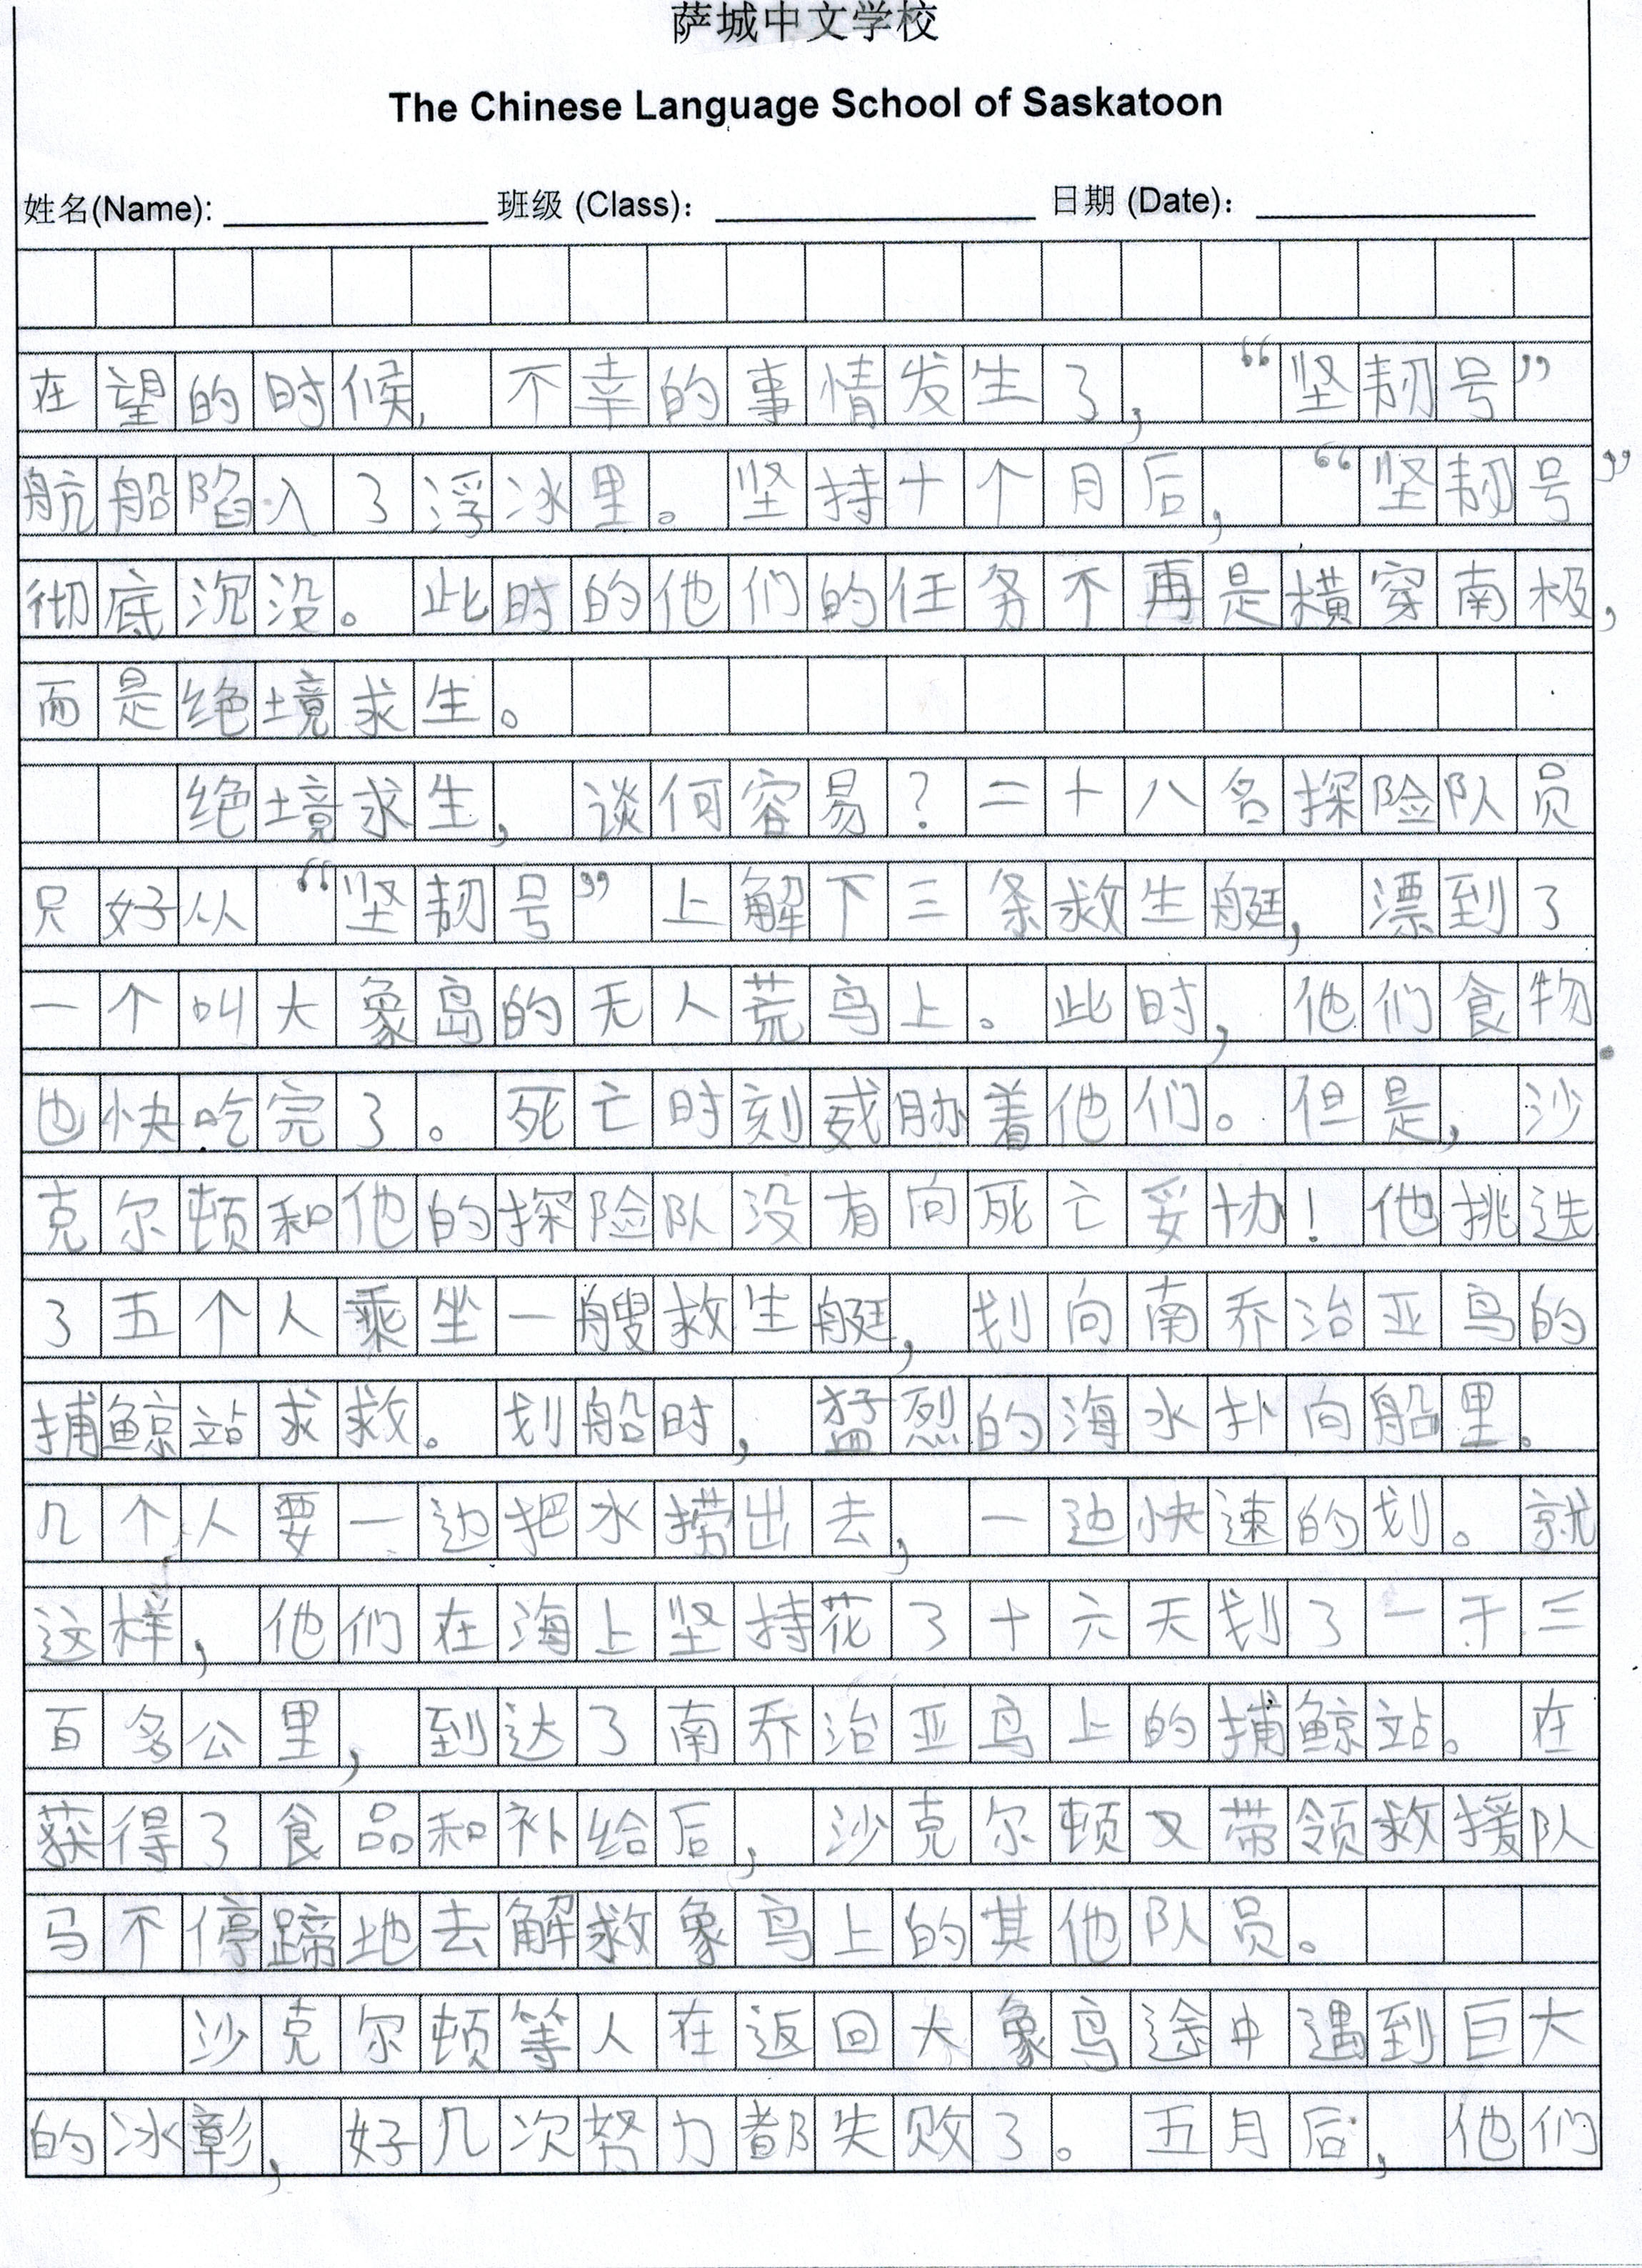 萨城中文学校
The Chinese Language School of Saskatoon
姓名(Name): 班级 (Class): 日期 (Date):
在望的时候,不幸的事情发生了,“坚韧号”
航船陷入了浮冰里。坚持十个月后,“坚韧号”
彻底沉没。此时的他们的任务不再是横穿南极,
而是绝境求生。
绝境求生,谈何容易?二十八名探险队员
只好从“坚韧号”上解下三条救生艇,漂到了
一个叫大象岛的无人荒鸟上。此时,他们食物
也快吃完了。死亡时刻威胁着他们。但是,沙
克尔顿和他的探险队没有向死亡妥协!他挑选
了五个人乘坐一艘救生艇,划向南乔治亚鸟的
捕鲸站求救。划船时,猛烈的海水扑向船里。
几个人要一边把水捞出去,一边快速的划。就
这样,他们在海上坚持花了十六天划了一千三
百多公里,到达了南乔治亚鸟上的捕鲸站。在
获得了食品和补给后,沙克尔顿又带领救援队
马不停蹄地去解救象鸟上的其他队员。
沙克尔顿等人在返回大象鸟途中遇到巨大
的冰彰,好几次努力都失败了。五月后,他们